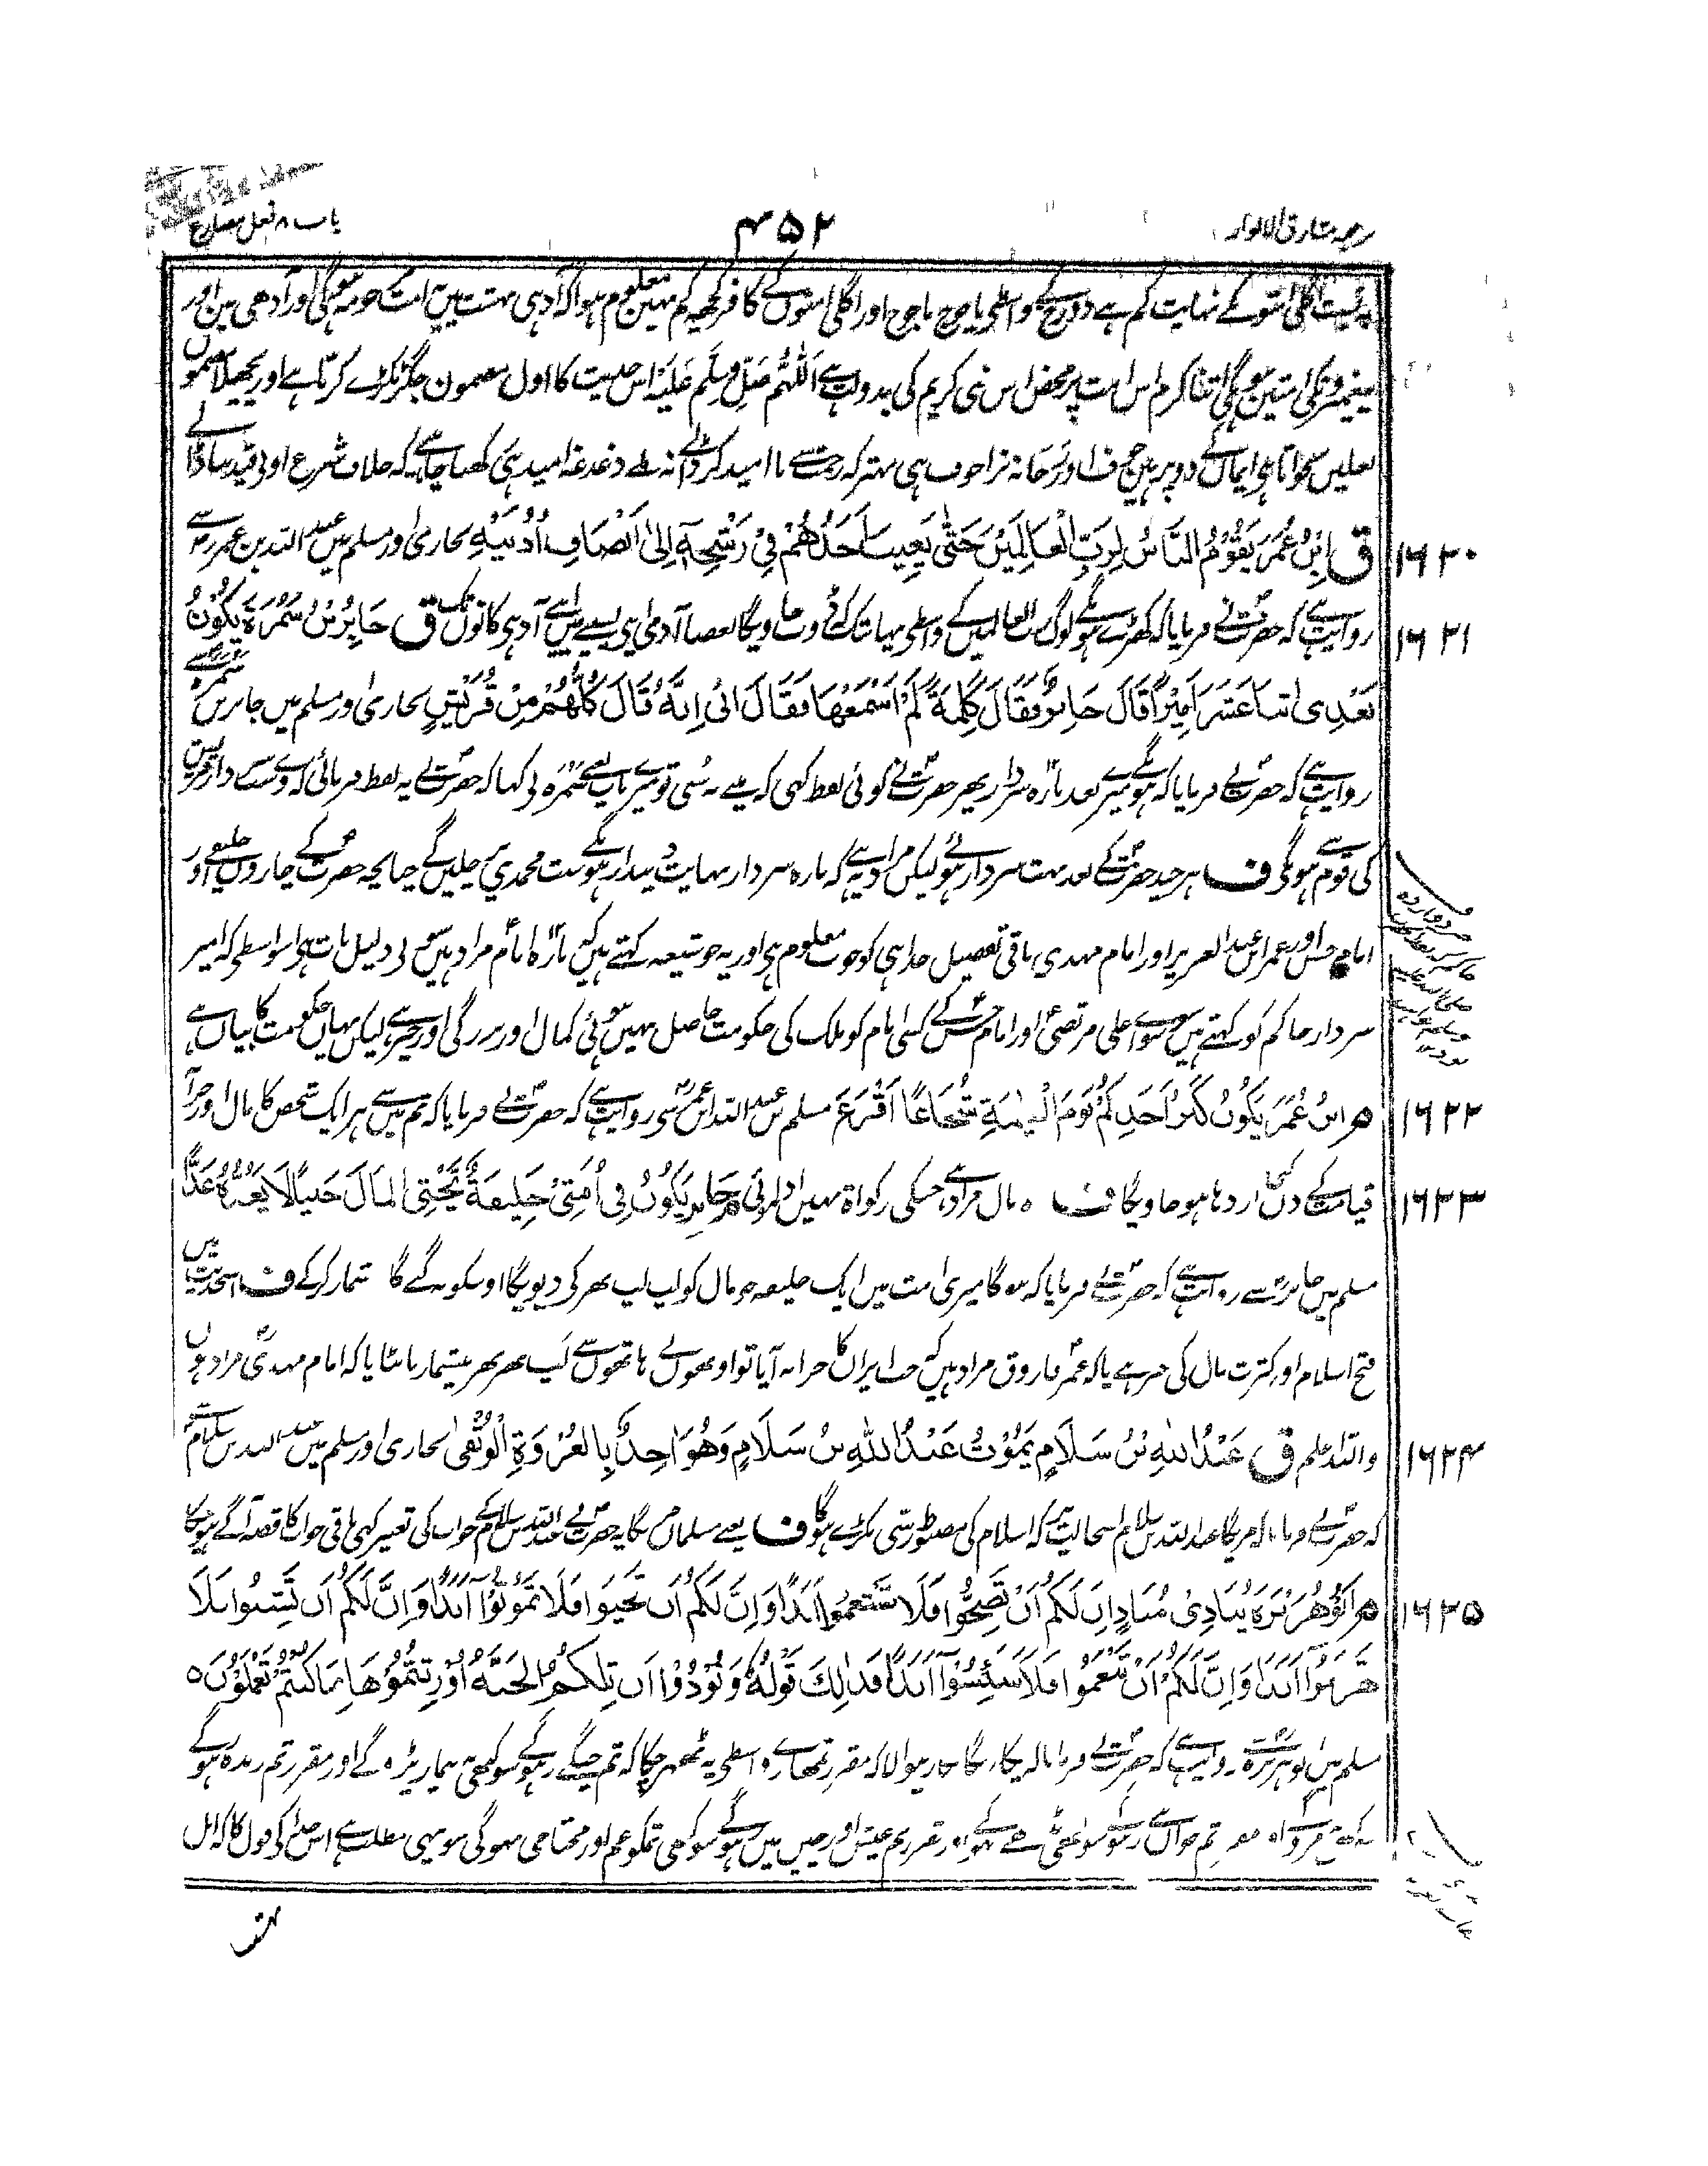 باب ۸ فعل مضارع
۴۵۲
ترجمہ مشارق الانوار
بہ نسبت اگلی امتو کے نہایت کم ہے دوزخ کے واسطے یاجوج ماجوج اور اگلی امتوں کے کافر کچھ کم نہین معلوم ہوا کہ آدہی بہشت میں یہ امت مرحومہ ہوگی اور آدھی مین اور
پیغمبرونکی امتین ہونگی اتنا کرم اس امت پر محض اس نبی کریم کی بدولت ہے اَللّٰهُمَّ صَلِّ وَسَلِّمْ عَلَيْهِ اس حدیث کا اول مضمون جگر ٹکڑے کرتا ہے اور پچھلا مضمون
ایمان کے دو پر ہین خوف اور رجا نہ نرا خوف ہی بہتر کہ رحمت سے ناامید کر ڈالے نہ بے دغدغہ امید ہی رکھنا چاہیے کہ خلاف شرع
۱۶۲۰ ق اِبْنُ عُمَرَ يَقُوْمُ النَّاسُ لِرَبِّ الْعَالَمِيْنَ حَتّٰى يَغِيْبَ اَحَدُهُمْ فِيْ رَشْحِهٖ اِلٰى اَنْصَافِ اُذُنَيْهِ بخاری اور مسلم میں عبد اللہ بن عمر رض سے
۱۶۲۱ روایت ہے کہ حضرت نے فرمایا کہ کھڑے ہونگے لوگ رب العالمین کے واسطے یہانتک کہ ڈوب جاویگا بعضا آدمی اپنے پسینے میں اپنے آدہے کانوں تک ق جَابِرُ بْنُ سَمُرَةَ يَكُوْنُ
بَعْدِى اثْنَا عَشَرَ اَمِيْرًا قَالَ جَابِرٌ فَقَالَ كَلِمَةً لَمْ اَسْمَعْهَا فَقَالَ اَبِي اِنَّهٗ قَالَ كُلُّهُمْ مِنْ قُرَيْشٍ بخاری اور مسلم میں جابر بن سمرہ سے
روایت ہے کہ حضرت نے فرمایا کہ ہونگے میرے بعد بارہ سردار پھر حضرت نے کوئی لفظ کہی کہ مینے نہ سُنی تو میرے باپ یعنے سمرہ نے کہا کہ حضرت نے یہ لفظ فرمائی کہ وے سب سردار قریش
کی قوم سے ہونگے ف ہر چند حضرت کے بعد بہت سردار ہوئے لیکن مراد یہ ہے کہ بارہ سردار نہایت دیندار ہونگے سنت محمدی پر چلیں گے چنانچہ حضرت کے چاروں خلیفے اور
امام حسن اور عمر ابن عبد العزیز اور امام مہدی باقی تفصیل خدا ہی کو خوب معلوم ہی اور یہ جو شیعہ کہتے ہیں کہ بارہ امام مراد ہیں سو بے دلیل بات ہی اسواسطے کہ امیر
سردار حاکم کو کہتے ہیں سو سواے علی مرتضیٰ اور امام حسن کے کسی امام کو ملک کی حکومت حاصل نہیں ہوئی کمال اور بزرگی اور چیز ہے لیکن یہاں حکومت کا بیاں ہے
۱۶۲۲ م ابْنُ عُمَرَ يَكُوْنُ كَنْزُ اَحَدِكُمْ يَوْمَ الْقِيٰمَةِ شُجَاعًا اَقْرَعَ مسلم میں عبد اللہ ابن عمر سے روایت ہے کہ حضرت نے فرمایا کہ تم میں سے ہر ایک شخص کا مال اور خزانہ
۱۶۲۳ قیامت کے دن گنجا اژدہا ہو جاویگا ف وہ مال مراد ہے جسکی زکواۃ نہیں ادا ہوئی م جَابِر يَكُوْنُ فِى اُمَّتِىْ خَلِيْفَةٌ يَحْثِى الْمَالَ حَثْيًا لَا يَعُدُّهٗ عَدًّا
مسلم میں جابر سے روایت ہے کہ حضرت نے فرمایا کہ ہوگا میری امت میں ایک خلیفہ جو مال کو لپ لپ بھر کی دیویگا اوسکو نہ گنے گا شمار کرکے ف اس حدیث میں
فتح اسلام اور کثرت مال کی خبر ہے یا کہ عمر فاروق مراد ہیں کہ جب ایران کا خزانہ آیا تو اونھوں نے ہاتھوں سے لپ بھر بھر بیشمار بانٹا یا کہ امام مہدی مراد ہوں
۱۶۲۴ واللہ اعلم ق عَبْدُ اللهِ بْنُ سَلَامٍ يَمُوْتُ عَبْدُ اللهِ بْنُ سَلَامٍ وَهُوَ اٰخِذٌ بِالْعُرْوَةِ الْوُثْقٰى بخاری اور مسلم میں عبد اللہ بن سلام سے
کہ حضرت نے فرمایا کہ مریگا عبد اللہ بن سلام اس حالت پر کہ اسلام کی مضبوط رسی پکڑے ہوگا ف یعنے مسلمان مریگا یہ حضرت نے عبد اللہ بن سلام کے خواب کی تعبیر کہی باقی خواب کا قصہ آگے ہو چکا
۱۶۲۵ م اَبُوْ هُرَيْرَةَ يُنَادِىْ مُنَادٍ اِنَّ لَكُمْ اَنْ تَصِحُّوْا فَلَا تَسْقَمُوْا اَبَدًا وَاِنَّ لَكُمْ اَنْ تَحْيَوْا فَلَا تَمُوْتُوْا اَبَدًا وَاِنَّ لَكُمْ اَنْ تَشِبُّوْا فَلَا
تَهْرَمُوْا اَبَدًا وَاِنَّ لَكُمْ اَنْ تَنْعَمُوْا فَلَا تَبْئَسُوْا اَبَدًا فَذٰلِكَ قَوْلُهٗ وَنُوْدُوْا اَنْ تِلْكُمُ الْجَنَّةُ اُوْرِثْتُمُوْهَا بِمَا كُنْتُمْ تَعْمَلُوْنَ
مسلم میں ابو ہریرہ سے روایت ہے کہ حضرت نے فرمایا کہ پکاریگا پکارنیوالا کہ مقرر تمھارے واسطے یہ ٹھہر چکا کہ تم چنگے رہوگے سو کبھی نہ بیمار پڑوگے اور مقرر تم زندہ رہوگے
تم جوان رہوگے سو کبھی بڈھے نہوگے اور مقرر تم عیش اور چین میں رہوگے سو کبھی تمکو غم اور محتاجی نہوگی سو یہی مطلب ہے اس خدا کے قول کا کہ اہل
بہشت